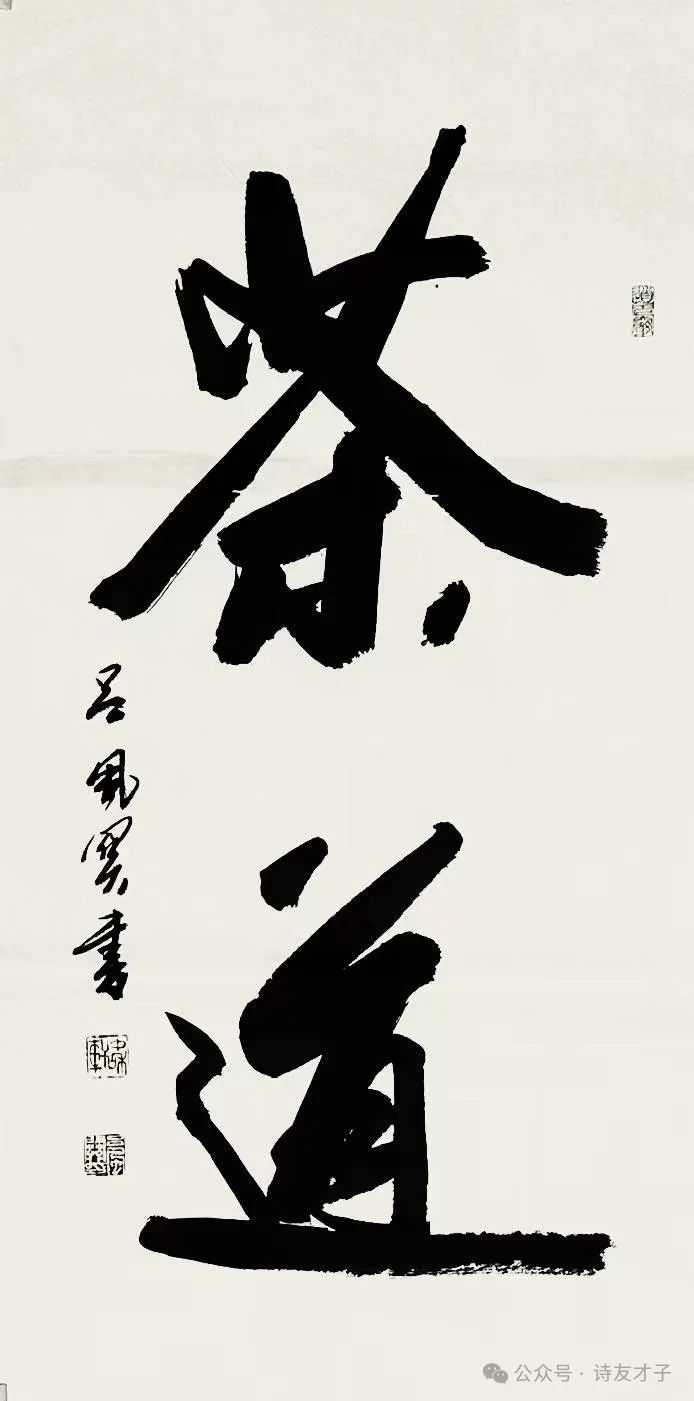 茶道
吕凤翼书
公众号·诗友才子